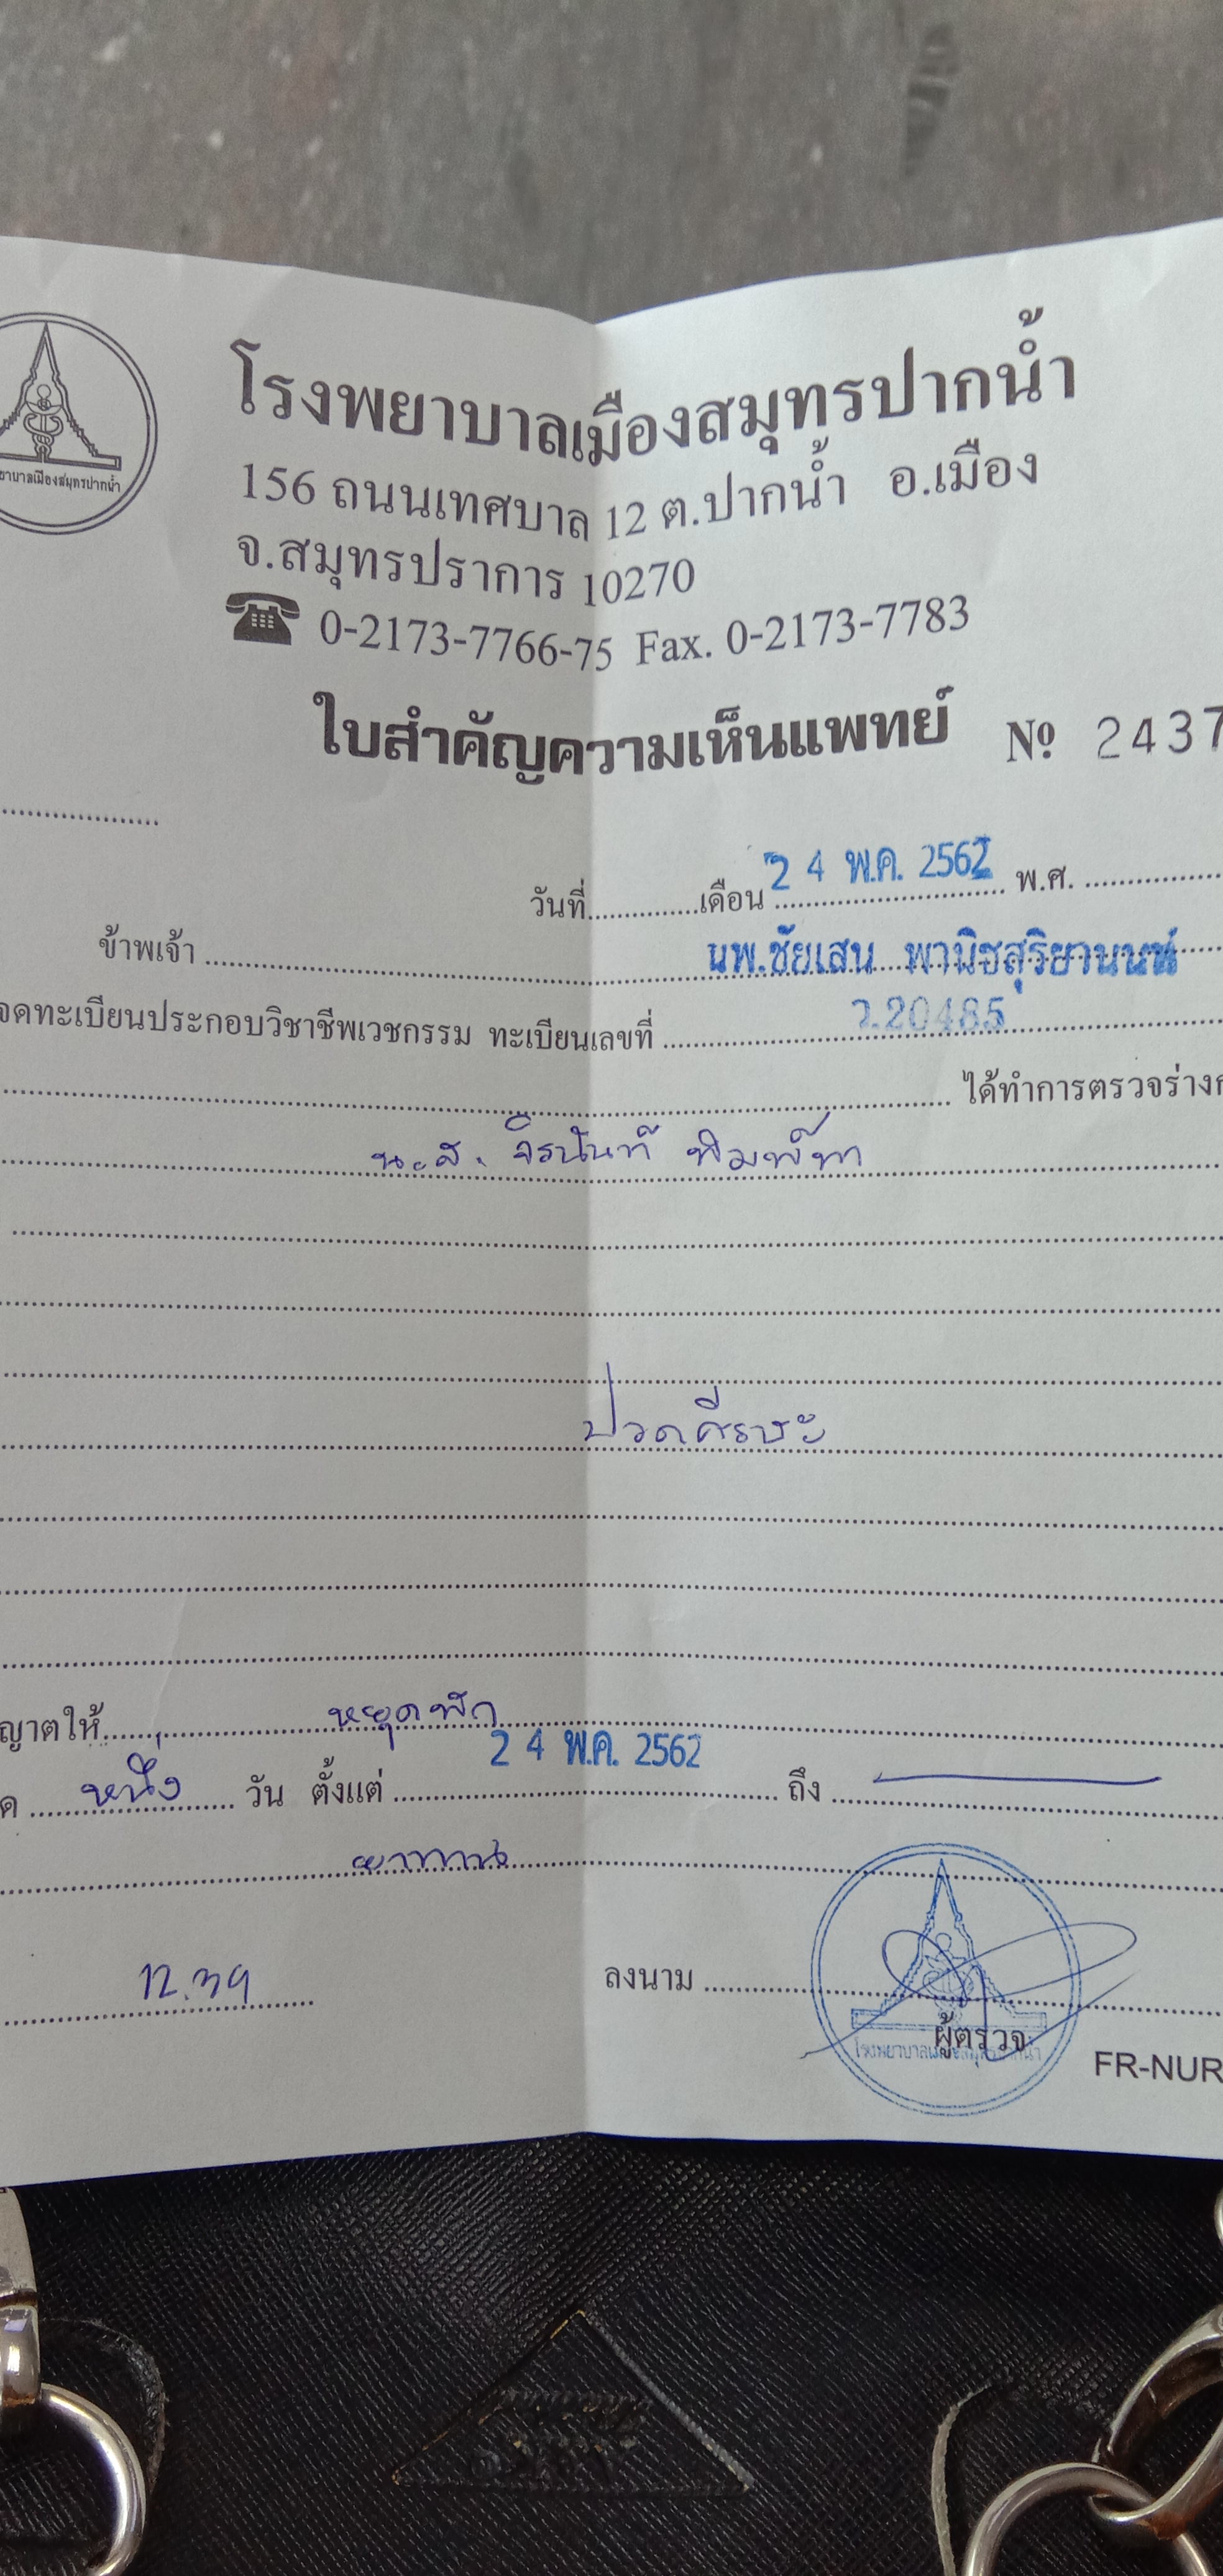 โรงพยาบาลเมืองสมุทรปากน้ำ
156 ถนนเทศบาล 12 ต.ปากน้ำ อ.เมือง
จ.สมุทรปราการ 10270
0-2173-7766-75 Fax. 0-2173-7783
ใบสำคัญความเห็นแพทย์ № 2437
วันที่ เดือน 24 พ.ค. 2562 พ.ศ.
ข้าพเจ้า นพ.ชัยเสน พานิชสุริยานนท์
จดทะเบียนประกอบวิชาชีพเวชกรรม ทะเบียนเลขที่ ว.20485
ได้ทำการตรวจร่างก
น.ส. จิรนันท์ พิมพ์ทา
ปวดศีรษะ
ญาตให้ หยุดพัก
ด หนึ่ง วัน ตั้งแต่ 24 พ.ค. 2562 ถึง
ยาทาน
12.39
ลงนาม
ผู้ตรวจ
FR-NUR